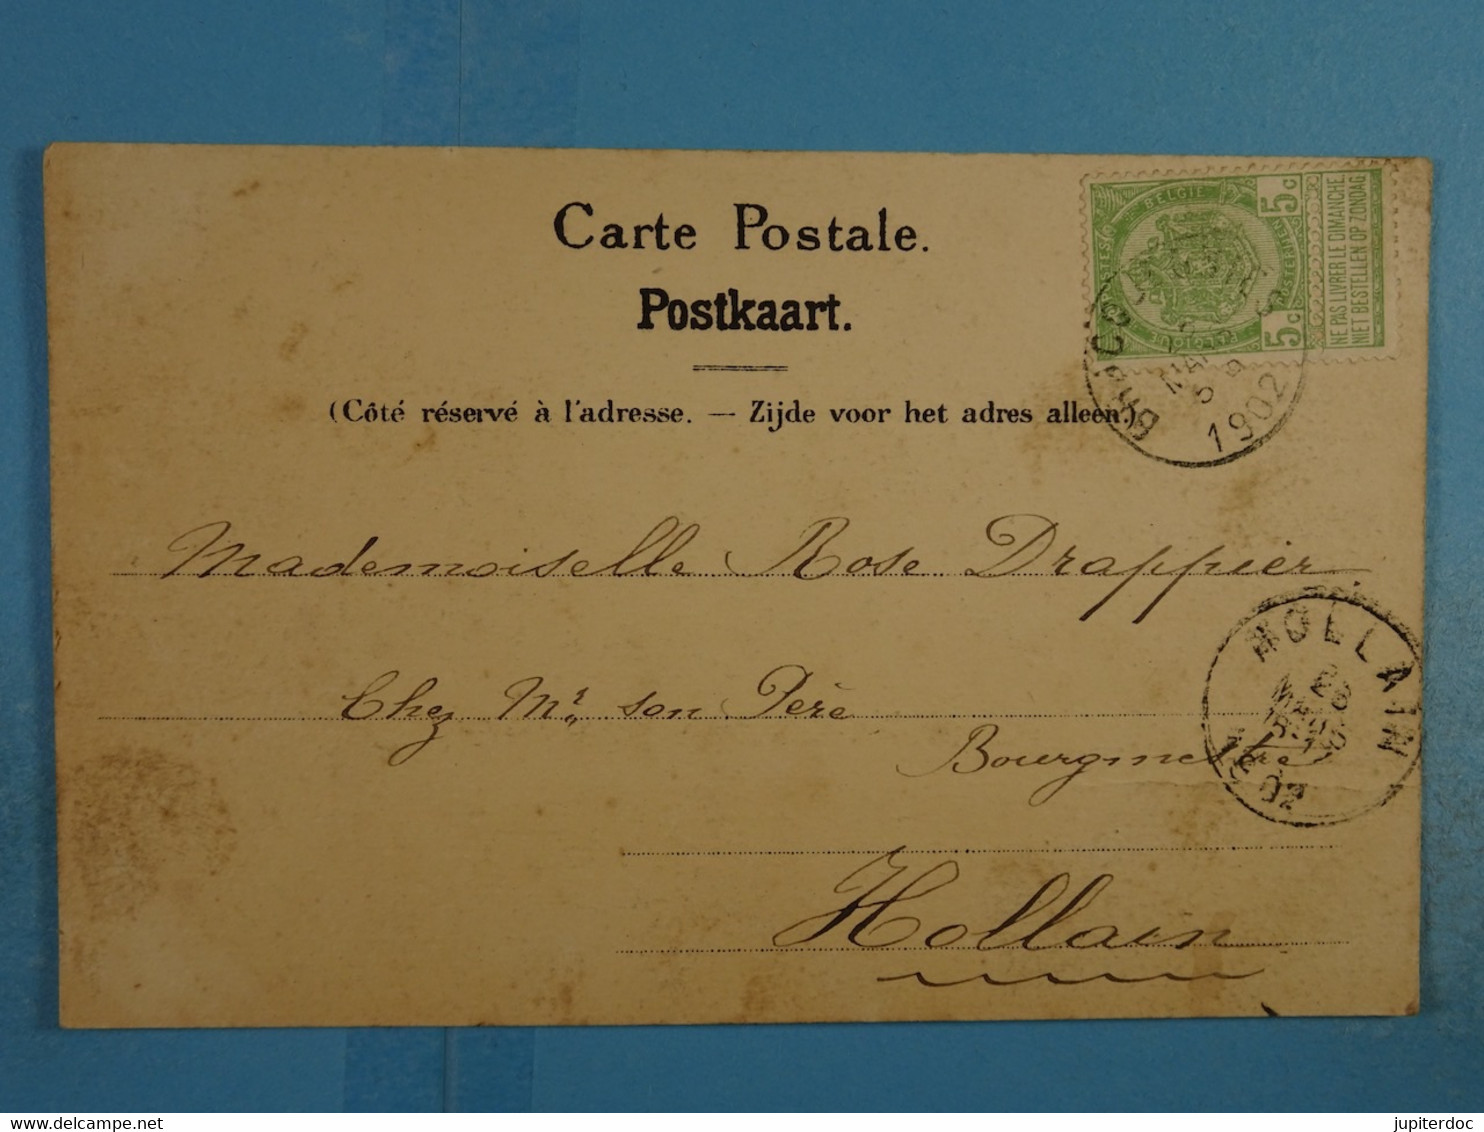 Carte Postale.
Postkaart.
(Côté réservé à l'adresse. — Zijde voor het adres alleen.)
BELGIE
BELGIQUE
5c
5c
NE PAS LIVRER LE DIMANCHE
NIET BESTELLEN OP ZONDAG
1902
Mademoiselle Rose Drappier
Chez Mr. son Père
Bourgmestre
Hollain
HOLLAIN
jupiterdoc
delcampe.net